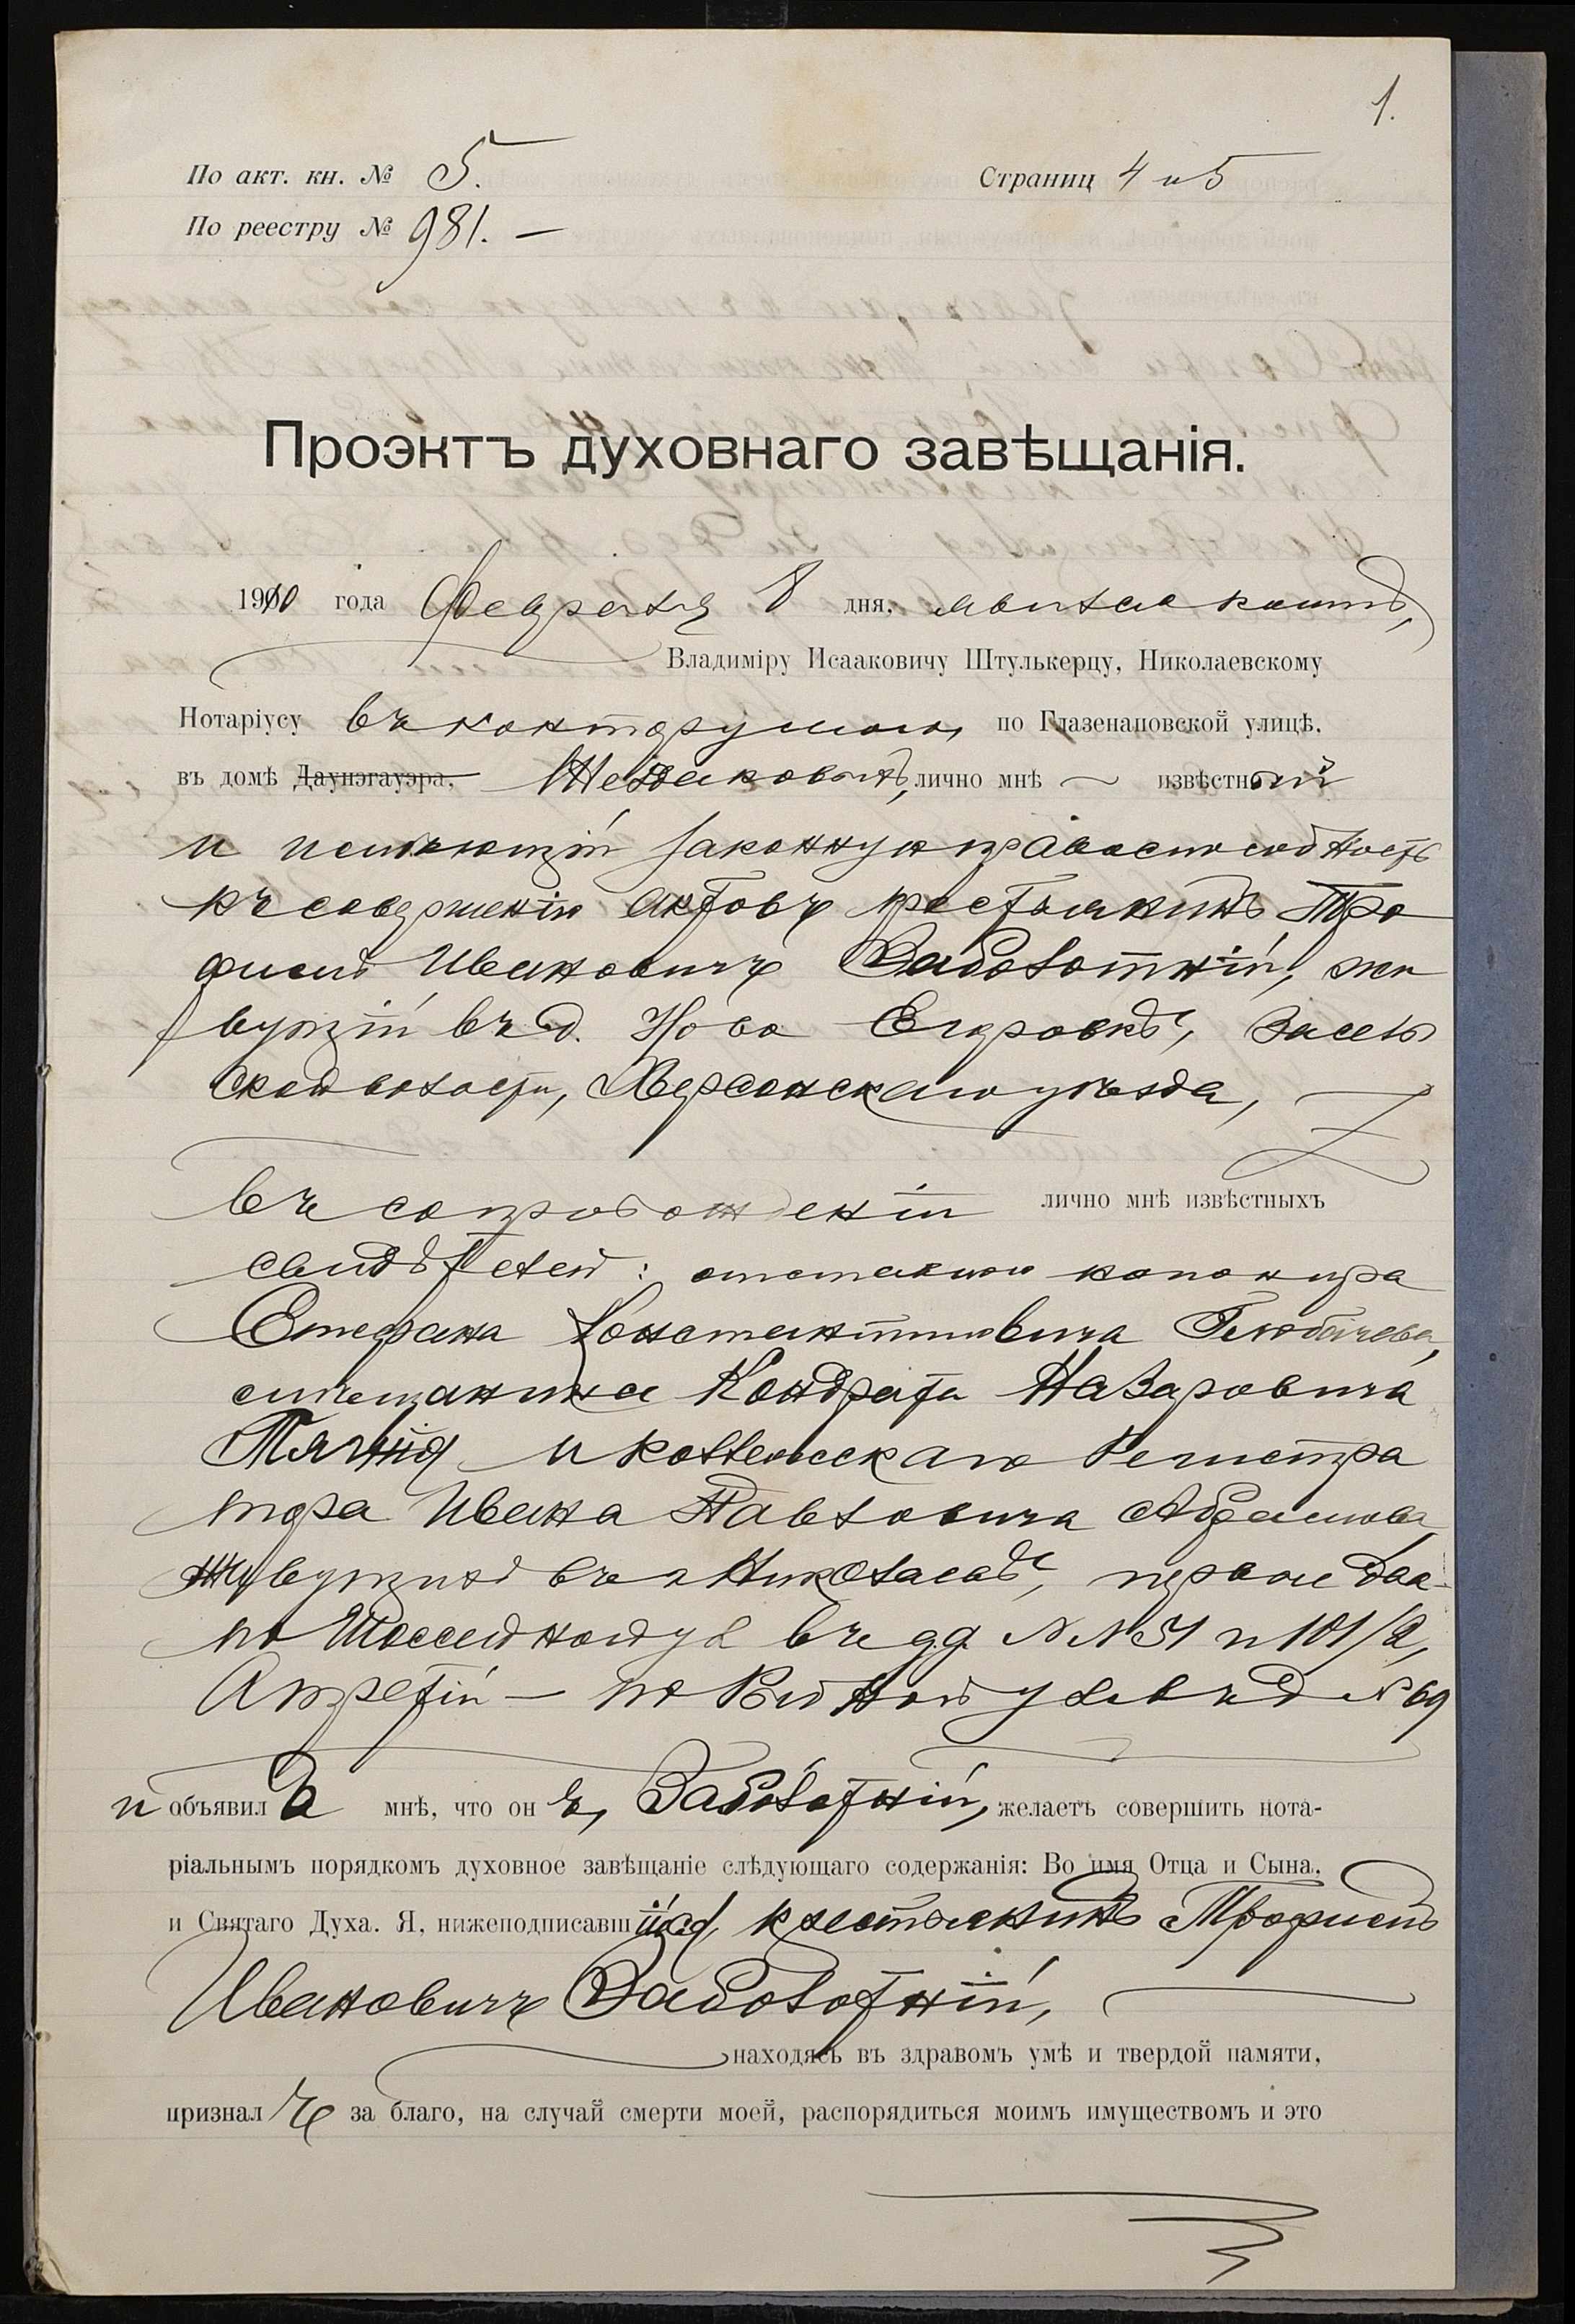 1.
По акт. кн. № 5. Страниц 4 и 5
По реестру № 981. —
Проэктъ духовнаго завѣщанія.
1910 года Февраля 8 дня, явился ко мнѣ,
Владиміру Исааковичу Штулькерцу, Николаевскому
Нотаріусу въ контору мою, по Глазенаповской улицѣ,
въ домѣ Даунэгауэра, лично мнѣ извѣстный
и имѣющій законную правоспособность
къ совершенію актовъ крестьянинъ Тро
фимъ Ивановичъ Заболотній, жи
вущій въ д. Ново Егоровкѣ,
ской волости, Херсонскаго уѣзда,
въ сопровожденіи лично мнѣ извѣстныхъ
свидѣтелей: отставного
Стефана Константиновича
мѣщанина Кондрата Назаровича
и коллежскаго Регистра
тора Ивана Павловича Абрамова
живущихъ въ г. Николаевѣ, первые два
по ул въ д.д. №№ 51 и 101/2,
А третій — по ул въ д № 69
и объявилъ мнѣ, что онъ, Заболотній, желаетъ совершить нота-
ріальнымъ порядкомъ духовное завѣщаніе слѣдующаго содержанія: Во имя Отца и Сына,
и Святаго Духа. Я, нижеподписавшійся, крестьянинъ Трофимъ
Ивановичъ Заболотній,
находясь въ здравомъ умѣ и твердой памяти,
призналъ за благо, на случай смерти моей, распорядиться моимъ имуществомъ и это